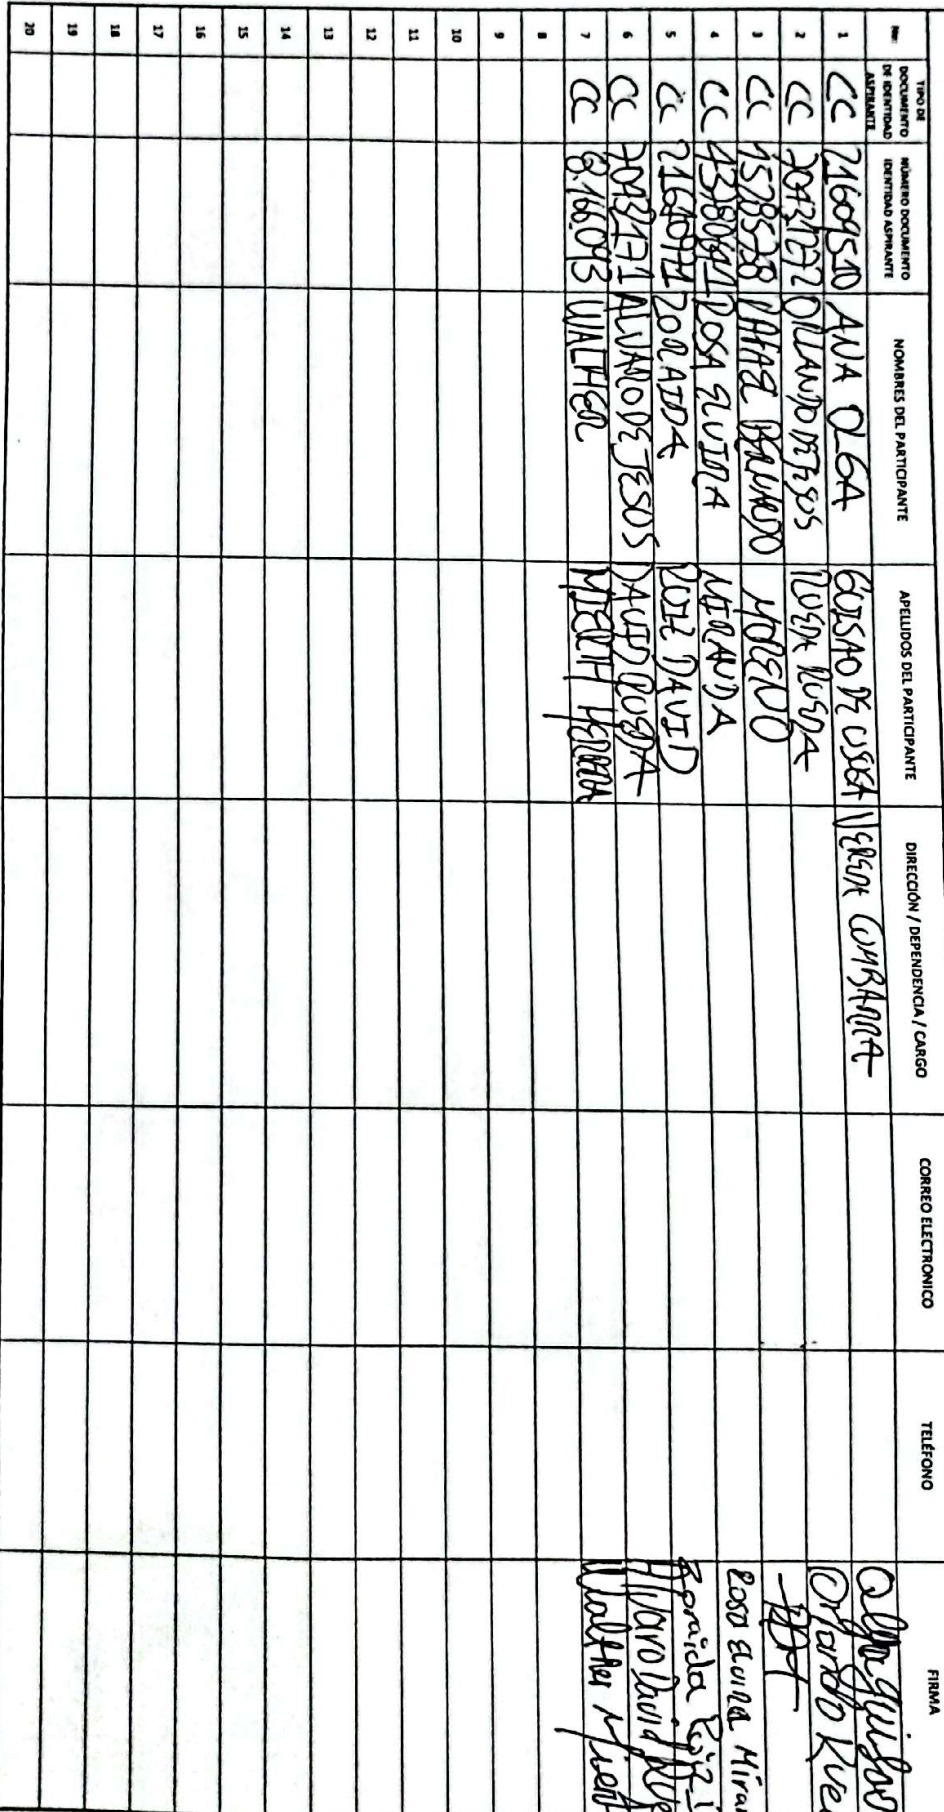 Nro: TIPO DE DOCUMENTO DE IDENTIDAD ASPIRANTE NÚMERO DOCUMENTO IDENTIDAD ASPIRANTE NOMBRES DEL PARTICIPANTE APELLIDOS DEL PARTICIPANTE DIRECCIÓN / DEPENDENCIA / CARGO CORREO ELECTRONICO TELÉFONO FIRMA
1 CC 21609510 ANA OLGA GUISAO DE USUGA VEREDA COMBARRA Olga guisao
2 CC ORLANDO RUEDA RUEDA Orlando Rue
3 CC 1528538 RAFAEL BERNARDO MORENO
4 CC ROSA ELVIRA MIRANDA Rosa Elvira Miran
5 CC ZORAIDA RUIZ DAVID Zoraida Ruiz
6 CC ALVARO DE JESUS DAVID RUEDA Alvaro David
7 CC 8.166.093 WALTHER HERRERA Walther
8
9
10
11
12
13
14
15
16
17
18
19
20